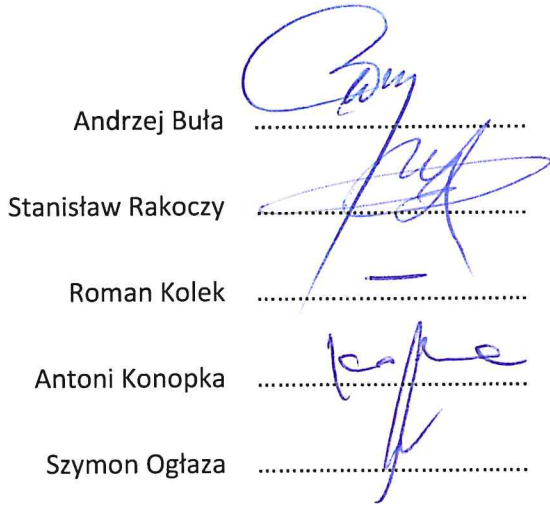 Andrzej Buła ................................................
Stanisław Rakoczy ................................................
Roman Kolek ................................................
Antoni Konopka ................................................
Szymon Ogłaza ................................................